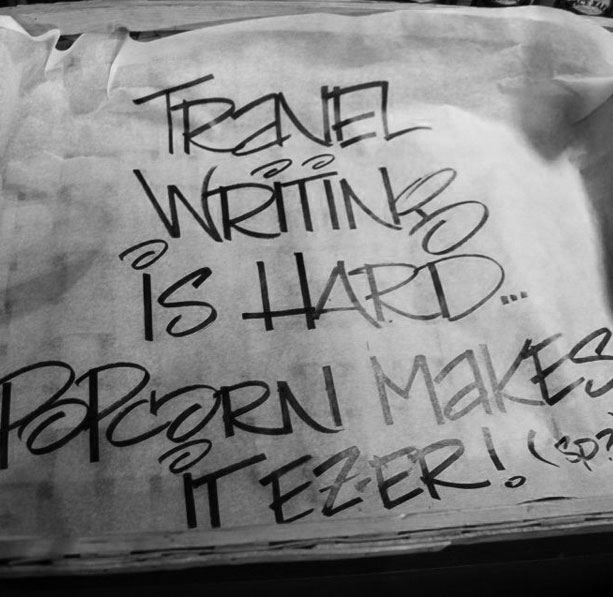 TRAVEL
WRITING
iS HARD...
POPCORN MAKES
iT EZ-ER! (SP?